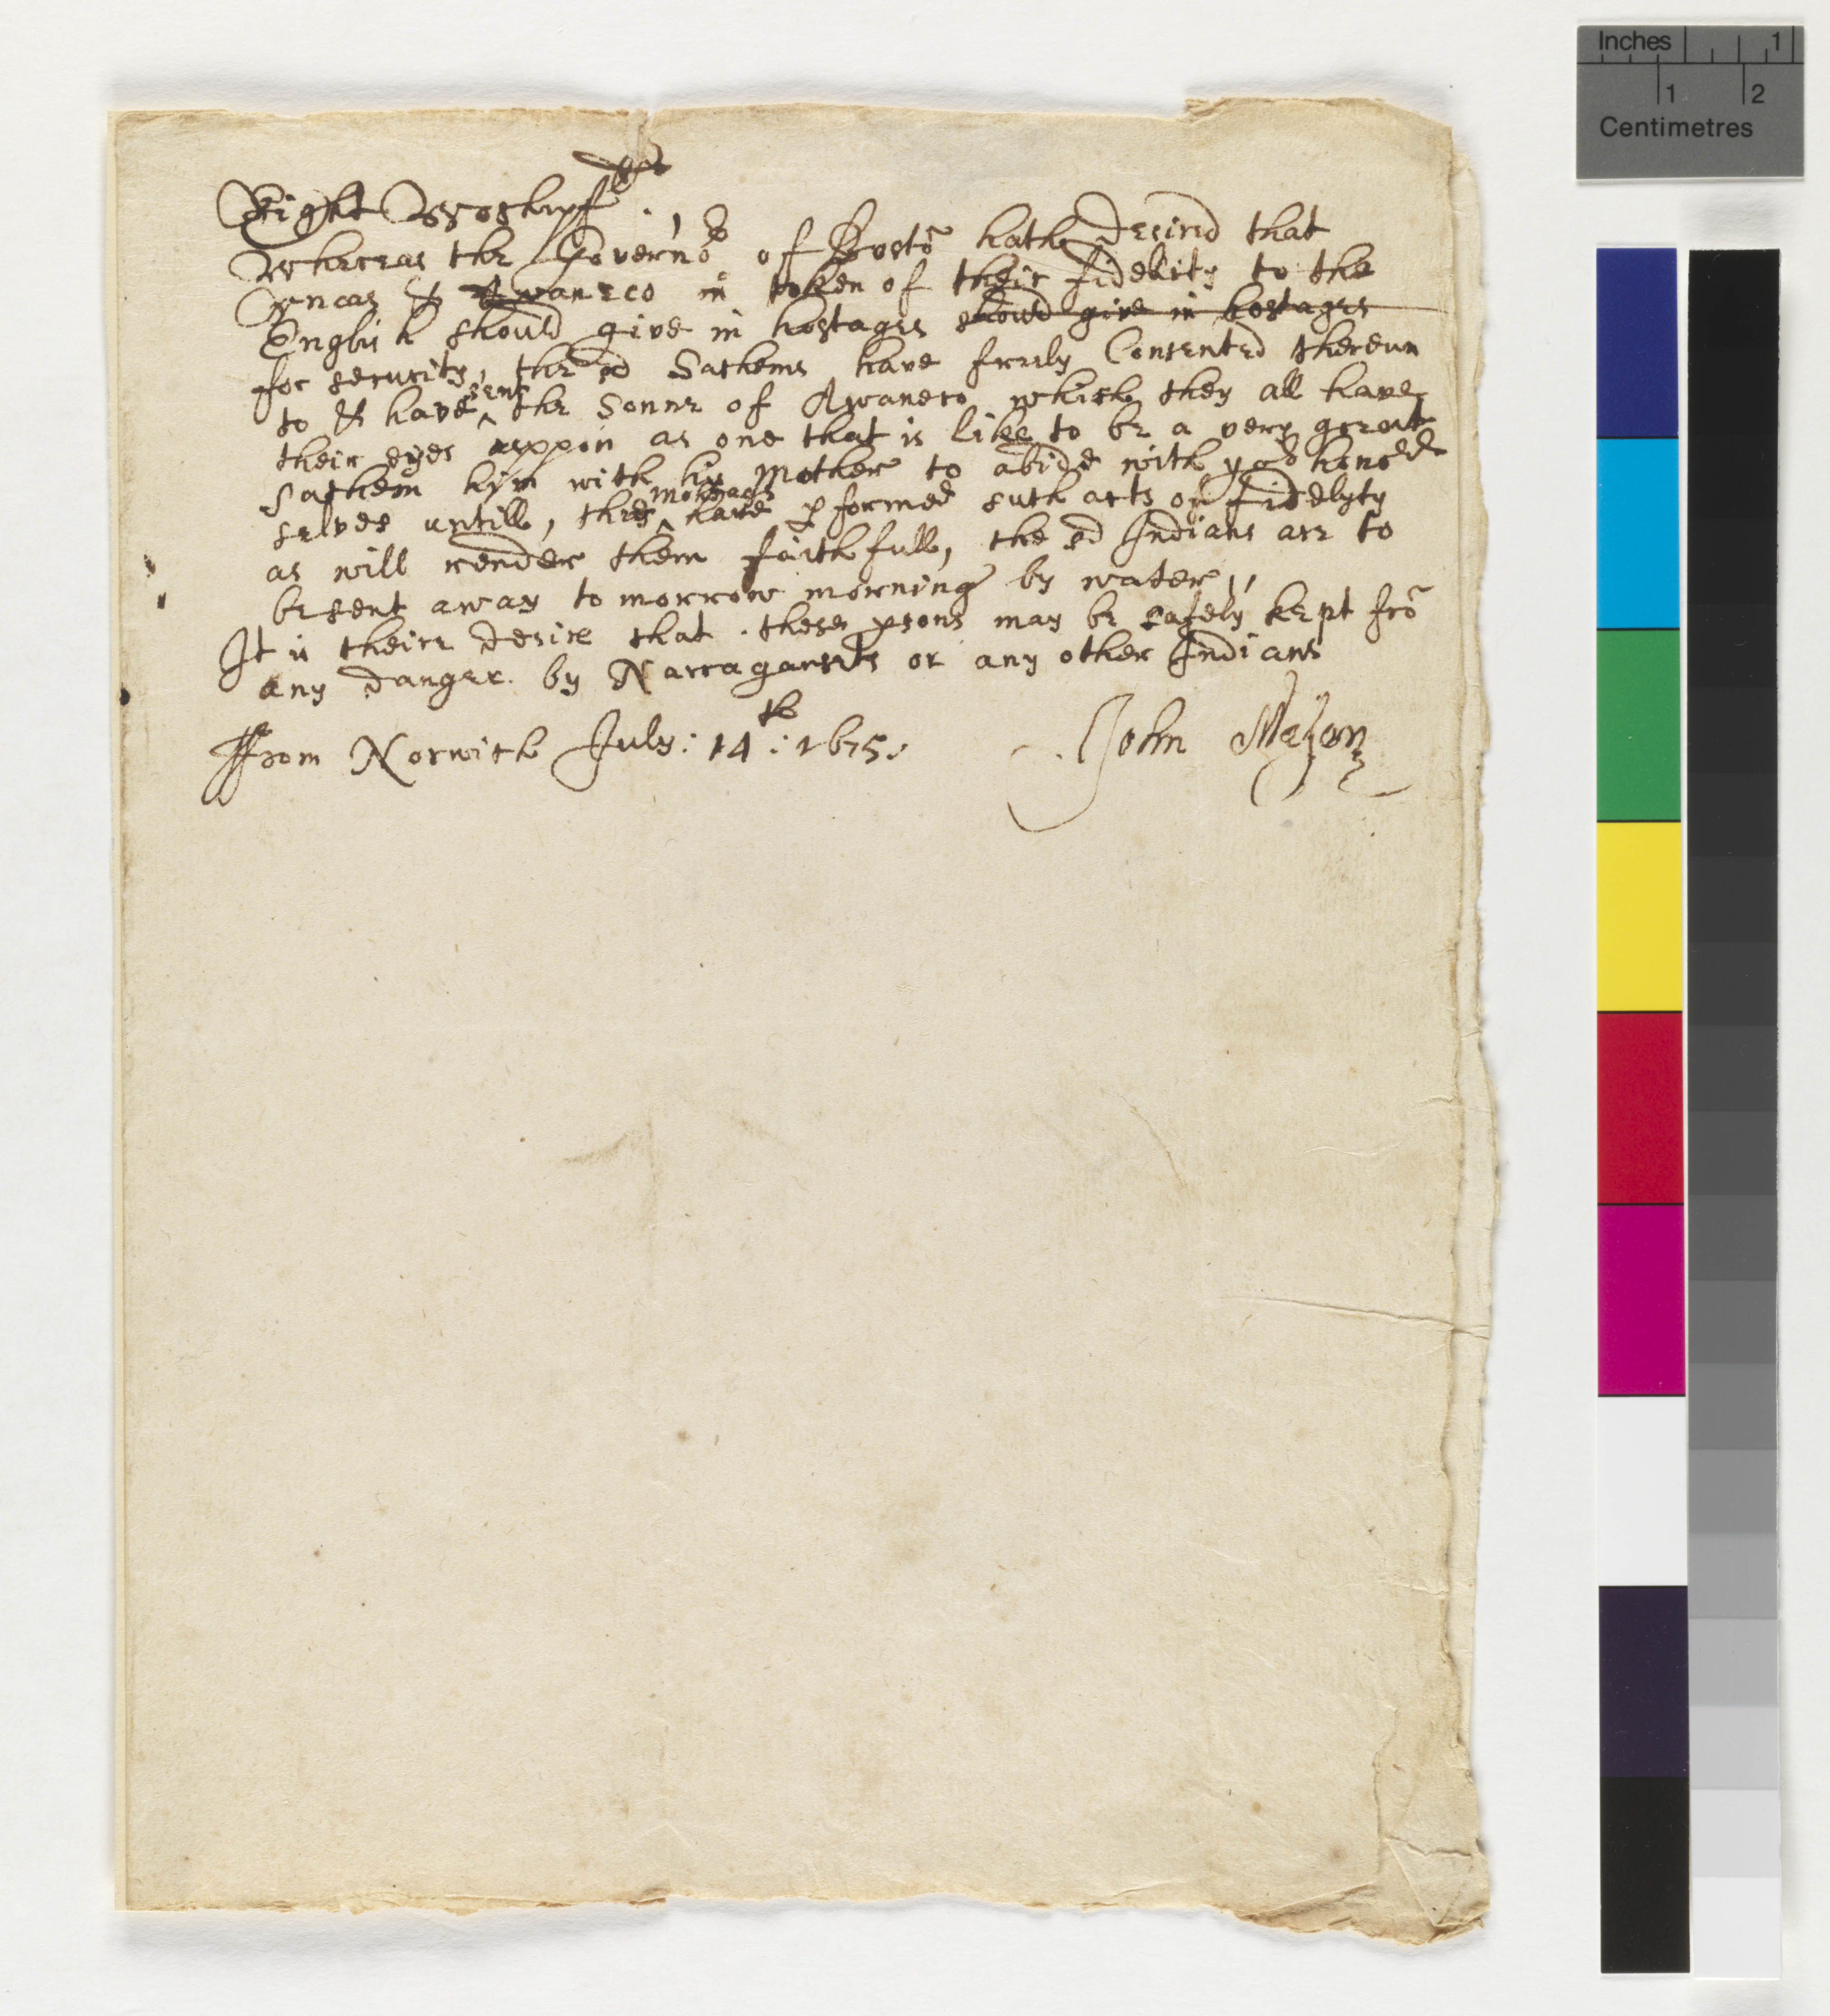 Right Worshipfll
Whereas the Governor of Bosto hath Desired that
Vncas & Awaneco in token of their fidelity to the
English should give in hostages should give in hostages
for security, the sd Sachems have freely Consented thereun
to & have ^sent the Sonne of Awaneco which they all have
their eyes uppon as one that is like to be a very great
Sachem hym with his Mother to abide with yor honord
selves untill, thes ^moheags have pformed such acts of fidelyty
as will render them faithfull, the sd Indians are to
be sent away to morrow morning by water,,
It is theire desire that these psons may be safely kept fro
any danger by Narragansets or any other Indians
From Norwich July: 14th: 1675:
John Mason
Inches 1
1 2
Centimetres